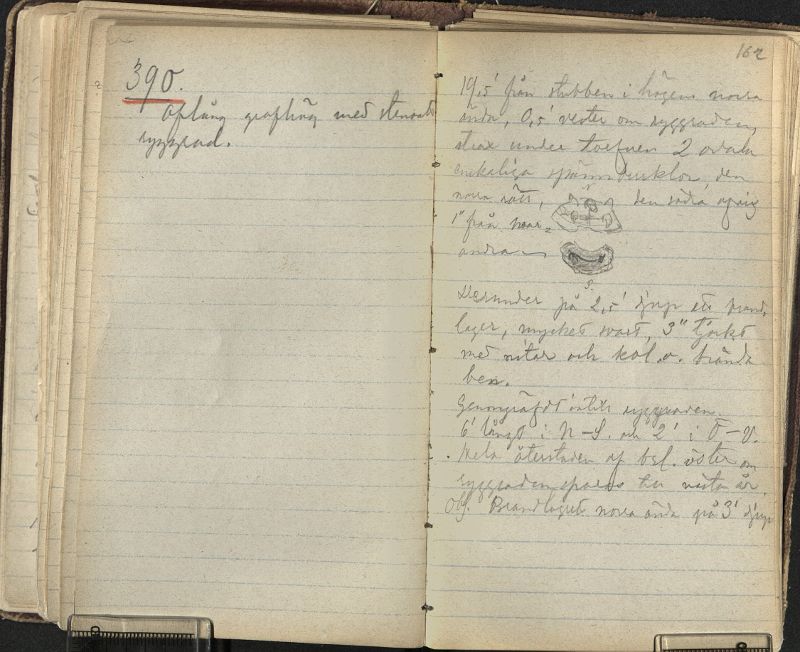 390.
Aflång grafhög med stensatt
ryggrad.
162
19,5' från stubben i högens norra
ända, 0,5' vester om ryggraden,
strax under torfven 2 ovala
enskaliga spännbucklor, den
norra rätt, den södra afvig
1" från hvar=
andra
N
S.
Derunder på 2,5' djup ett brand
lager, mycket svart, 3" tjockt
med nitar och kol o. brända
ben.
Genomgräfdt intill ryggraden.
6' långt i N–S. och 2' i Ö–V.
Hela återstoden af bsl. öster om
ryggraden sparas till nästa år.
Obs. Brandlagrets norra ända på 3' djup